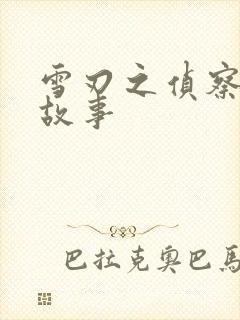 雪刃之偵察
故事
巴拉克奧巴馬